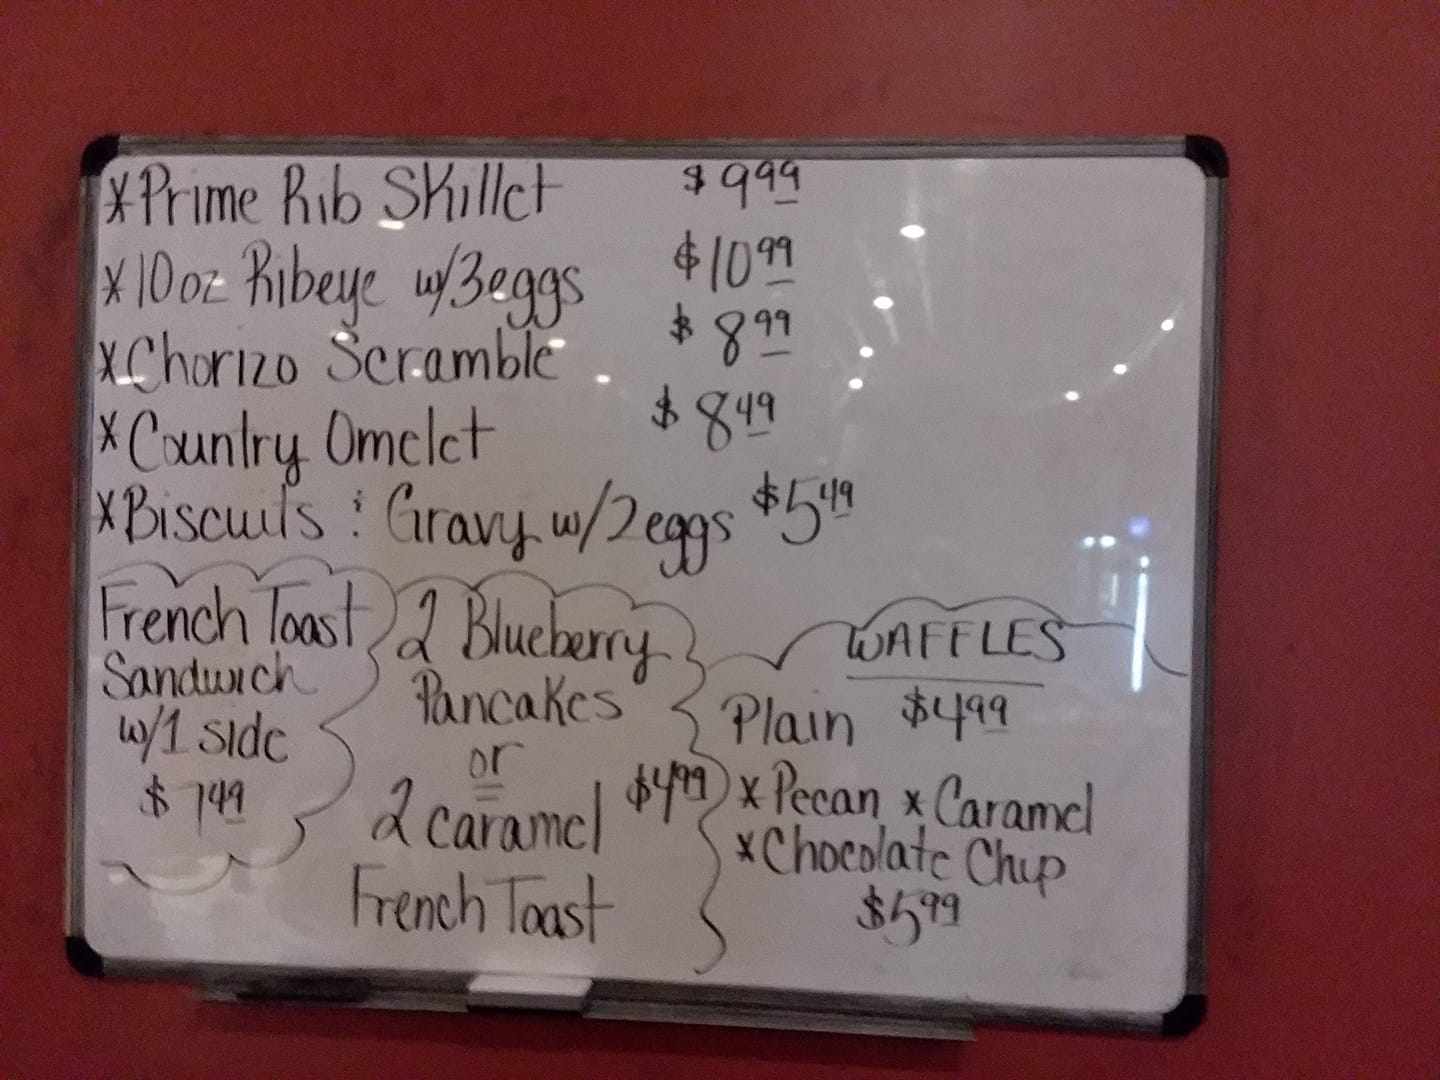 *Prime Rib Skillet $9.99
*10oz Ribeye w/3eggs $10.99
*Chorizo Scramble $8.99
*Country Omelet $8.49
*Biscuits & Gravy w/2eggs $5.49
French Toast
Sandwich
w/1 side
$7.49
2 Blueberry
Pancakes
or
2 caramel $4.99
French Toast
WAFFLES
Plain $4.99
*Pecan *Caramel
*Chocolate Chip
$5.99